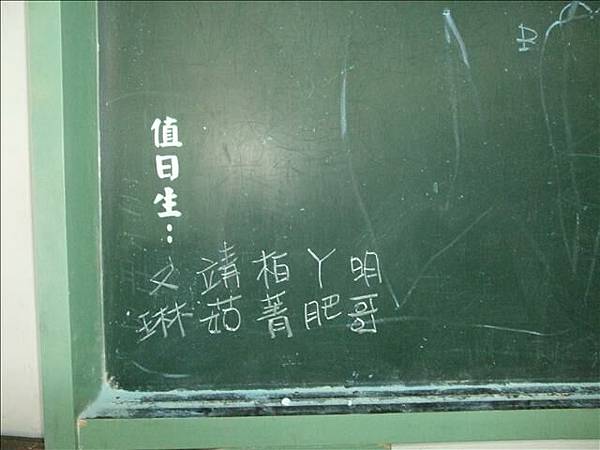 值日生：
文琳
靖茹
柏菁
丫肥
明哥
R